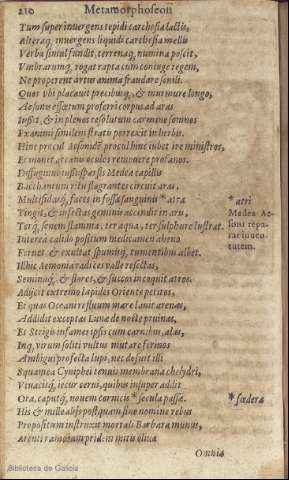 210 Metamorphoseon
Tum super inuergens tepidi carchesia lactis,
Alteraq, inuergens liquidi carchesia mellis
Verba simul fundit, terrenaq, numina poscit,
Vmbrarumq, rogat rapta cum coniuge regem,
Ne properent artus anima fraudare senili.
Quos vbi placauit precibusq, & murmure longo,
Aesonis effœtum proferri corpus ad aras
Iussit, & in plenos resolutum carmine somnos
Exanimi similem stratis porrexit in herbis.
Hinc procul Aesonidē procul hinc iubet ire ministros,
Et monet arcanis oculos remouere profanos.
Diffugiunt iussi: sparsis Medea capillis
Bacchantum ritu flagrantes circuit aras,
Multifidasq, faces in fossa sanguinis * atra
* atri
Tingit, & infectas geminis accendit in aris,
Medea Ae-
Terq, senem flamma, ter aqua, ter sulphure lustrat.
soni repa-
rat iuuen-
Interea calido positum medicamen aheno
tutem.
Feruet, & exultat spumisq, tumentibus albet.
Illhic Aemonia radices valle resectas,
Seminaq, & flores, & succos incoquit atros.
Adijcit extremo lapides Oriente petitos,
Et quas Oceani refluum mare lauit arenas,
Addidit exceptas Lunæ de nocte pruinas,
Et Strigis infames ipsis cum carnibus, alas,
Inq, virum soliti vultus mutare ferinos
Ambigui prosecta lupi, nec defuit illi
Squamea Cinyphei tenuis membrana chelydri,
Viuacisq, iecur cerui, quibus insuper addit
Ora, caputq, nouem cornicis * secula passæ.
* sœdera
His & mille alijs postquam sine nomine rebus
Propositum instruxit mortali Barbara munus,
Arenti ramo iampridem mitis oliuæ
Omnia
Biblioteca de Galicia